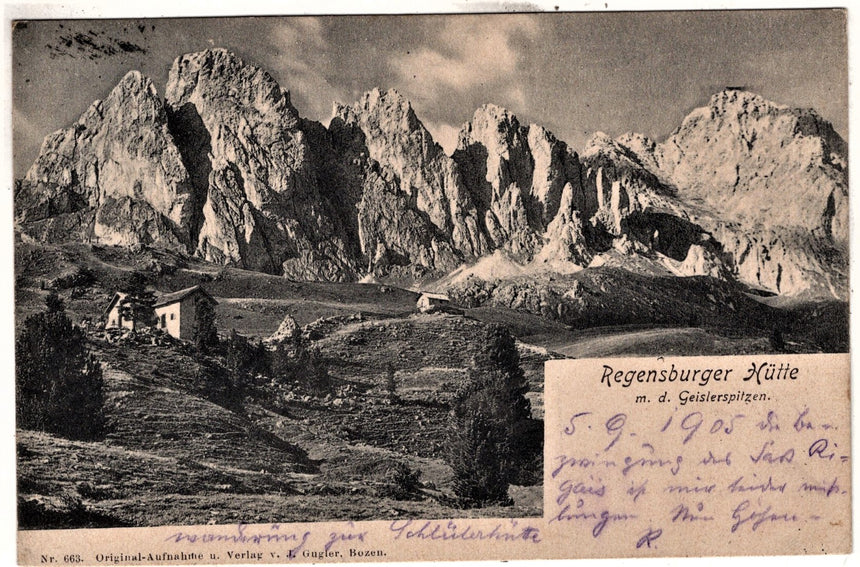 Regensburger Hütte
m. d. Geislerspitzen.
5. 9. 1905 die Be-
zwingung des Saß Ri-
gais ist mir leider miß-
lungen. Nun Höhen-
wanderung zur Schlüterhütte
R.
Nr. 663. Original-Aufnahme u. Verlag v. J. Gugler, Bozen.